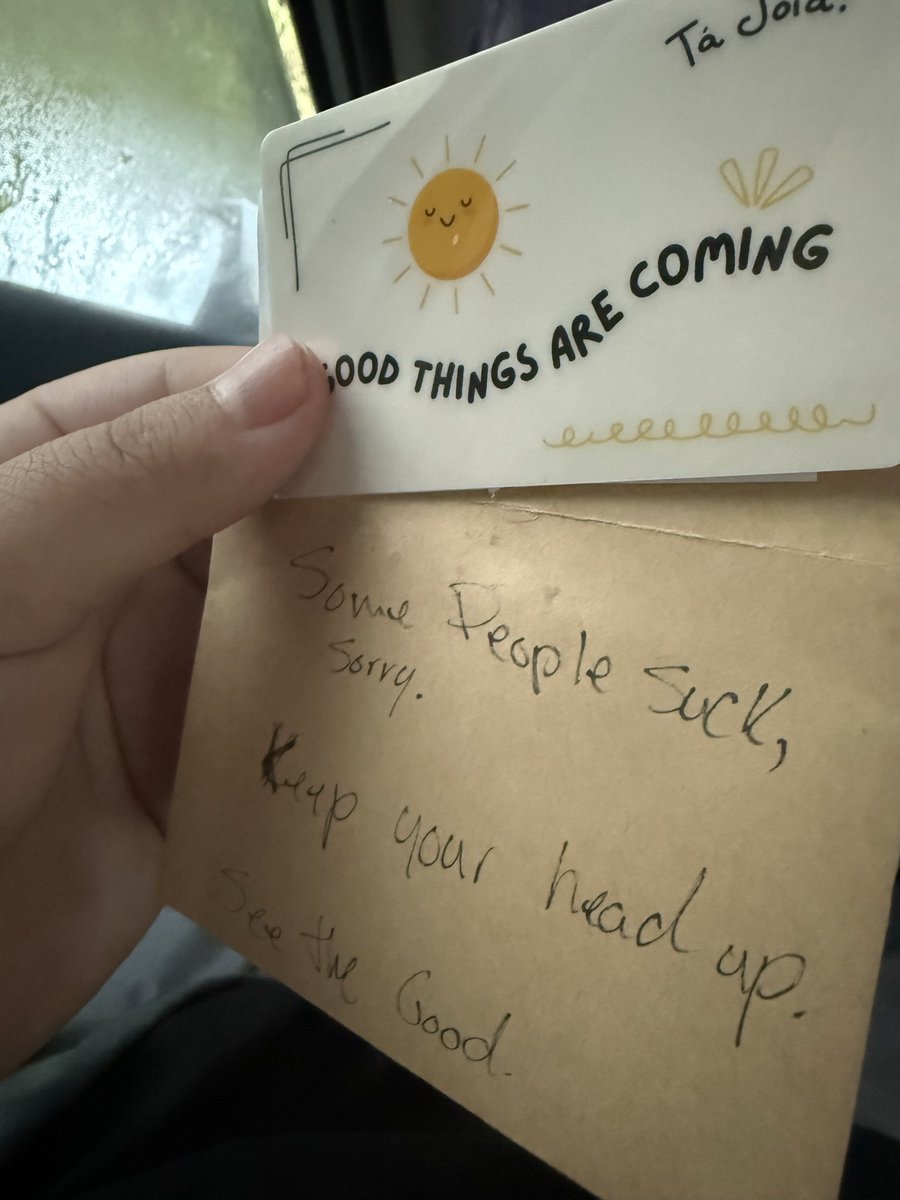 Tá Joia!
GOOD THINGS ARE COMING
Some People Suck,
Sorry.
Keep your head up.
See the Good.